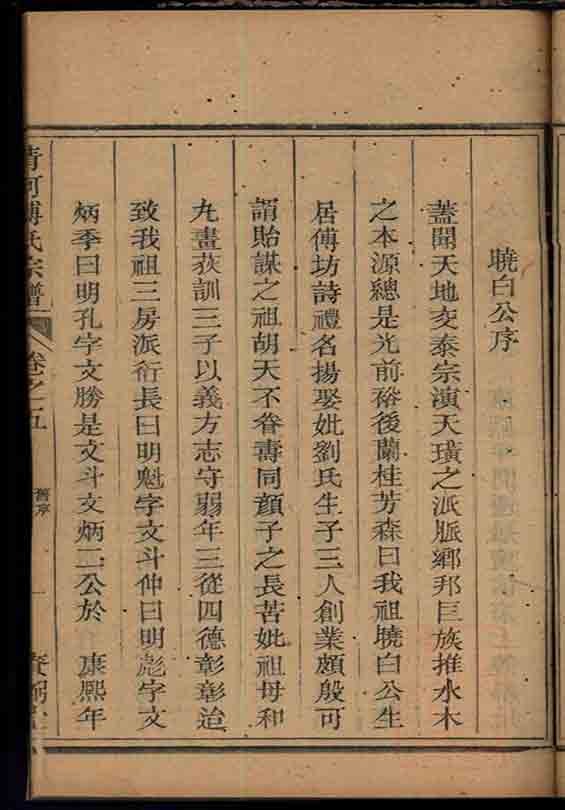 曉白公序
蓋聞天地交泰宗演天璜之派脈鄉邦巨族推水木
之本源總是光前裕後蘭桂芳森曰我祖曉白公生
居傅坊詩禮名揚娶妣劉氏生子三人創業頗殷可
謂貽謀之祖胡天不眷壽同顏子之長苦妣祖母和
丸畫荻訓三子以義方志守弱年三從四德彰彰治
致我祖三房派衍長曰明魁字文斗仲曰明彪字文
炳季曰明孔字文勝是文斗文炳二公於 康熙年
清河傅氏宗譜 卷之五 舊序 一